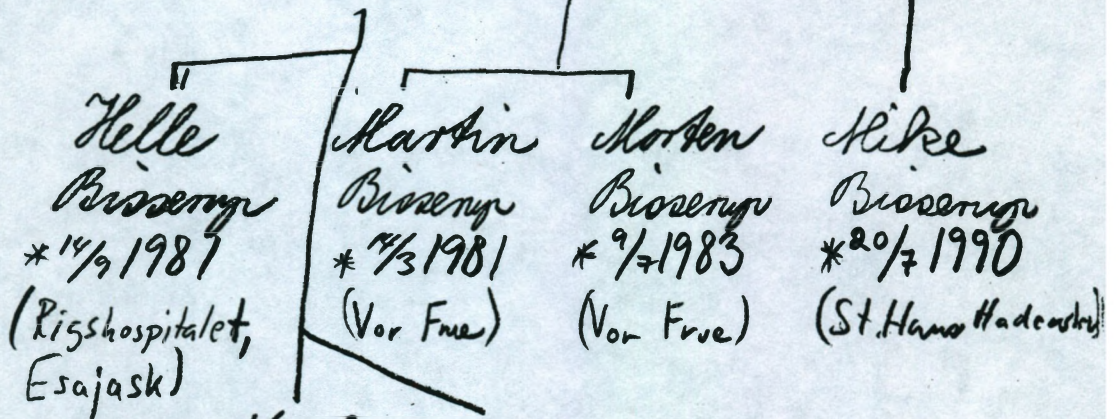 Helle
Bisserup
* 14/9 1987
(Rigshospitalet,
Esajask)
Martin
Bisserup
* 14/3 1981
(Vor Frue)
Morten
Bisserup
* 9/7 1983
(Vor Frue)
Mike
Bisserup
* 20/7 1990
(St. Hans